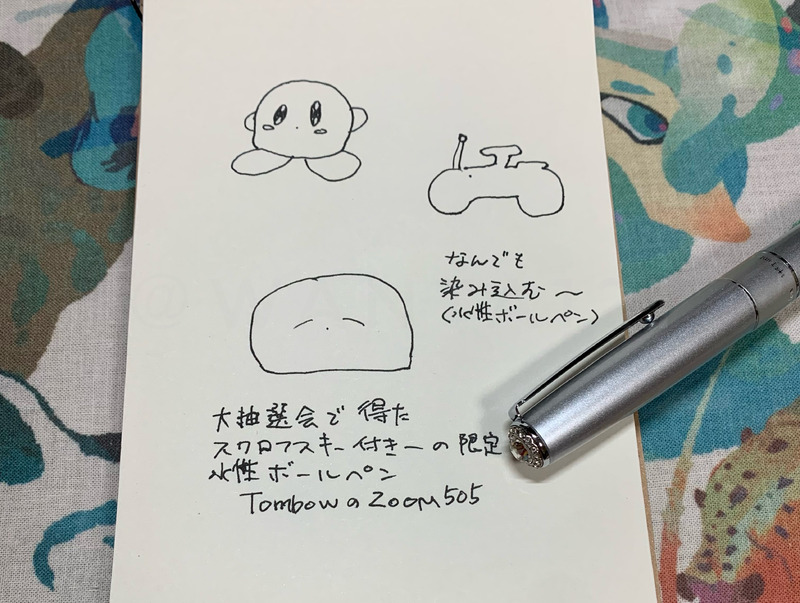 なんでも
染み込む〜
(水性ボールペン)
大抽選会で得た
スワロフスキー付きーの限定
水性ボールペン
TombowのZOOM505